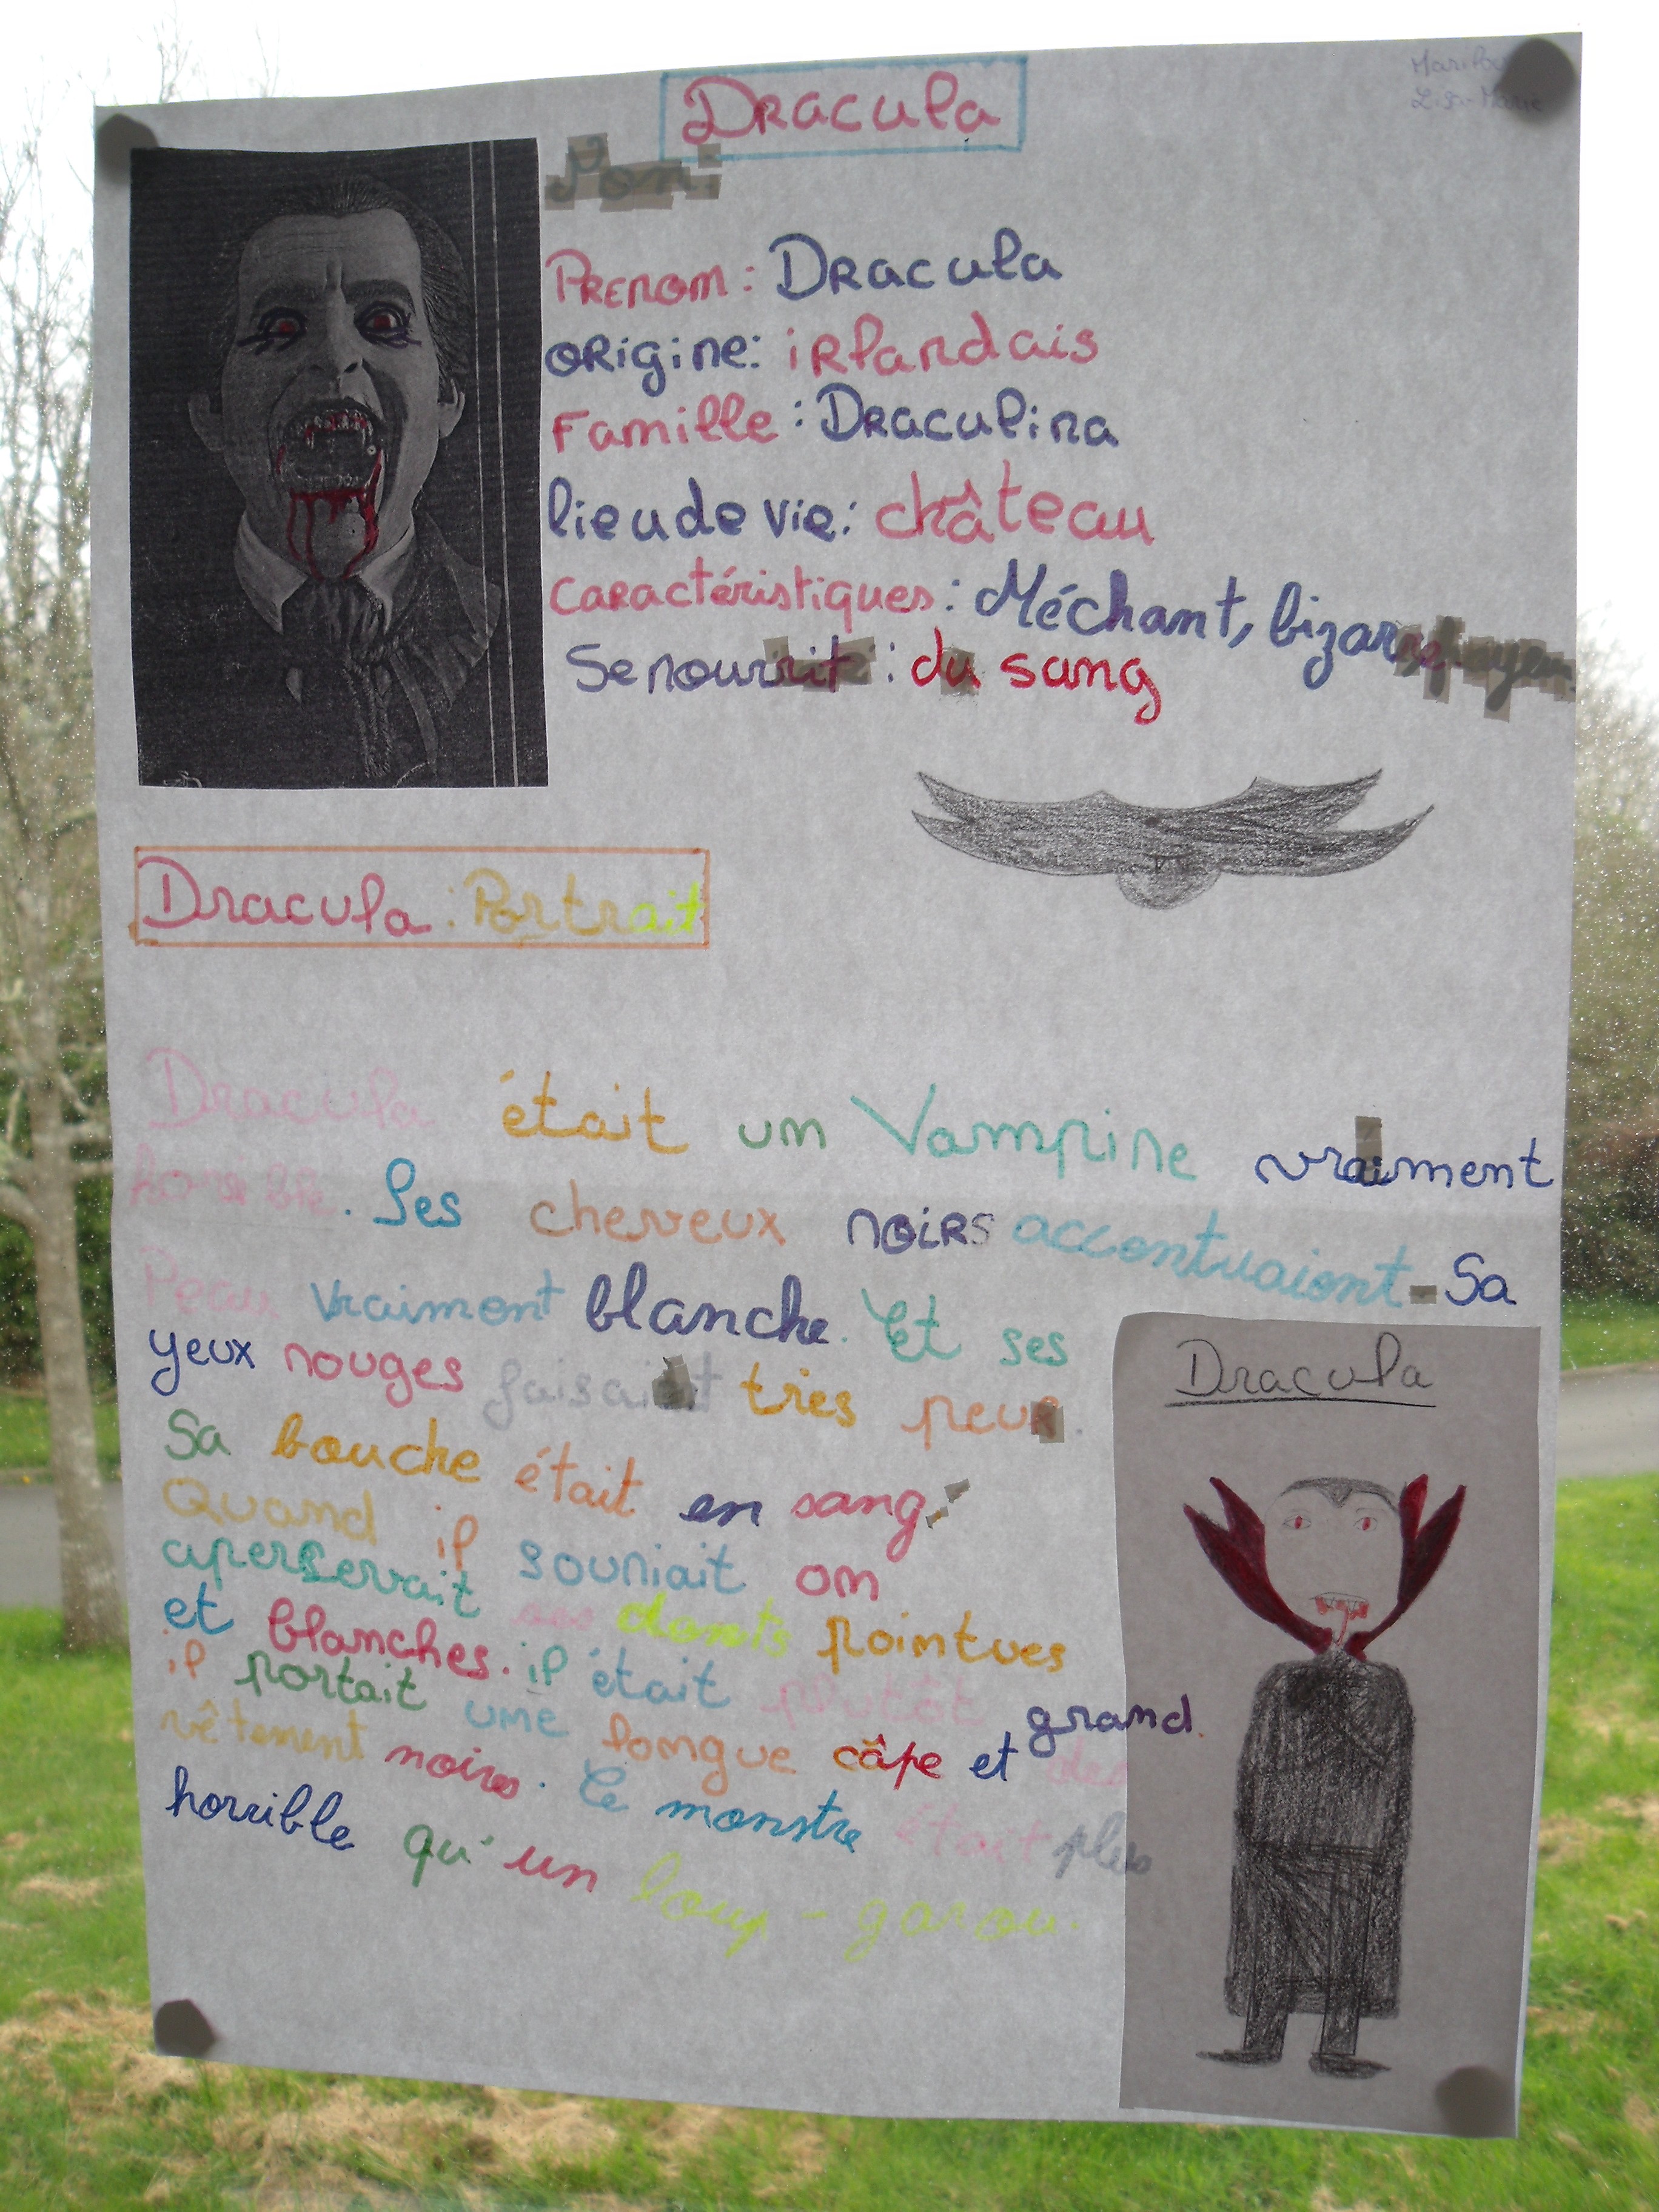 Dracula
Lisa-Marie
Nom:
Prenom: Dracula
origine: irlandais
Famille: Draculina
lieu de vie: château
caractéristiques: Méchant, bizarre,
Se nourrit: du sang
Dracula: Portrait
Dracula était un Vampire vraiment
horrible. Ses cheveux noirs accentuaient Sa
Peau vraiment blanche. Et ses
yeux rouges faisait très peur.
Sa bouche était en sang.
Quand il souriait on
aperservait ses dents pointues
et blanches. il était plutôt grand.
il portait une longue câpe et des
vêtement noires. Ce monstre était plus
horrible qu'un loup-garou.
Dracula